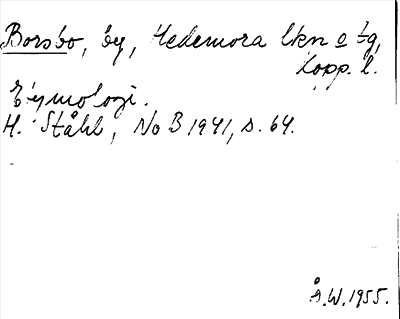 Borsbo, by, Hedemora lkn o tg,
Kopp. l.
Etymologi.
H. Ståhl, NoB 1941, s. 64.
Å.W. 1955.